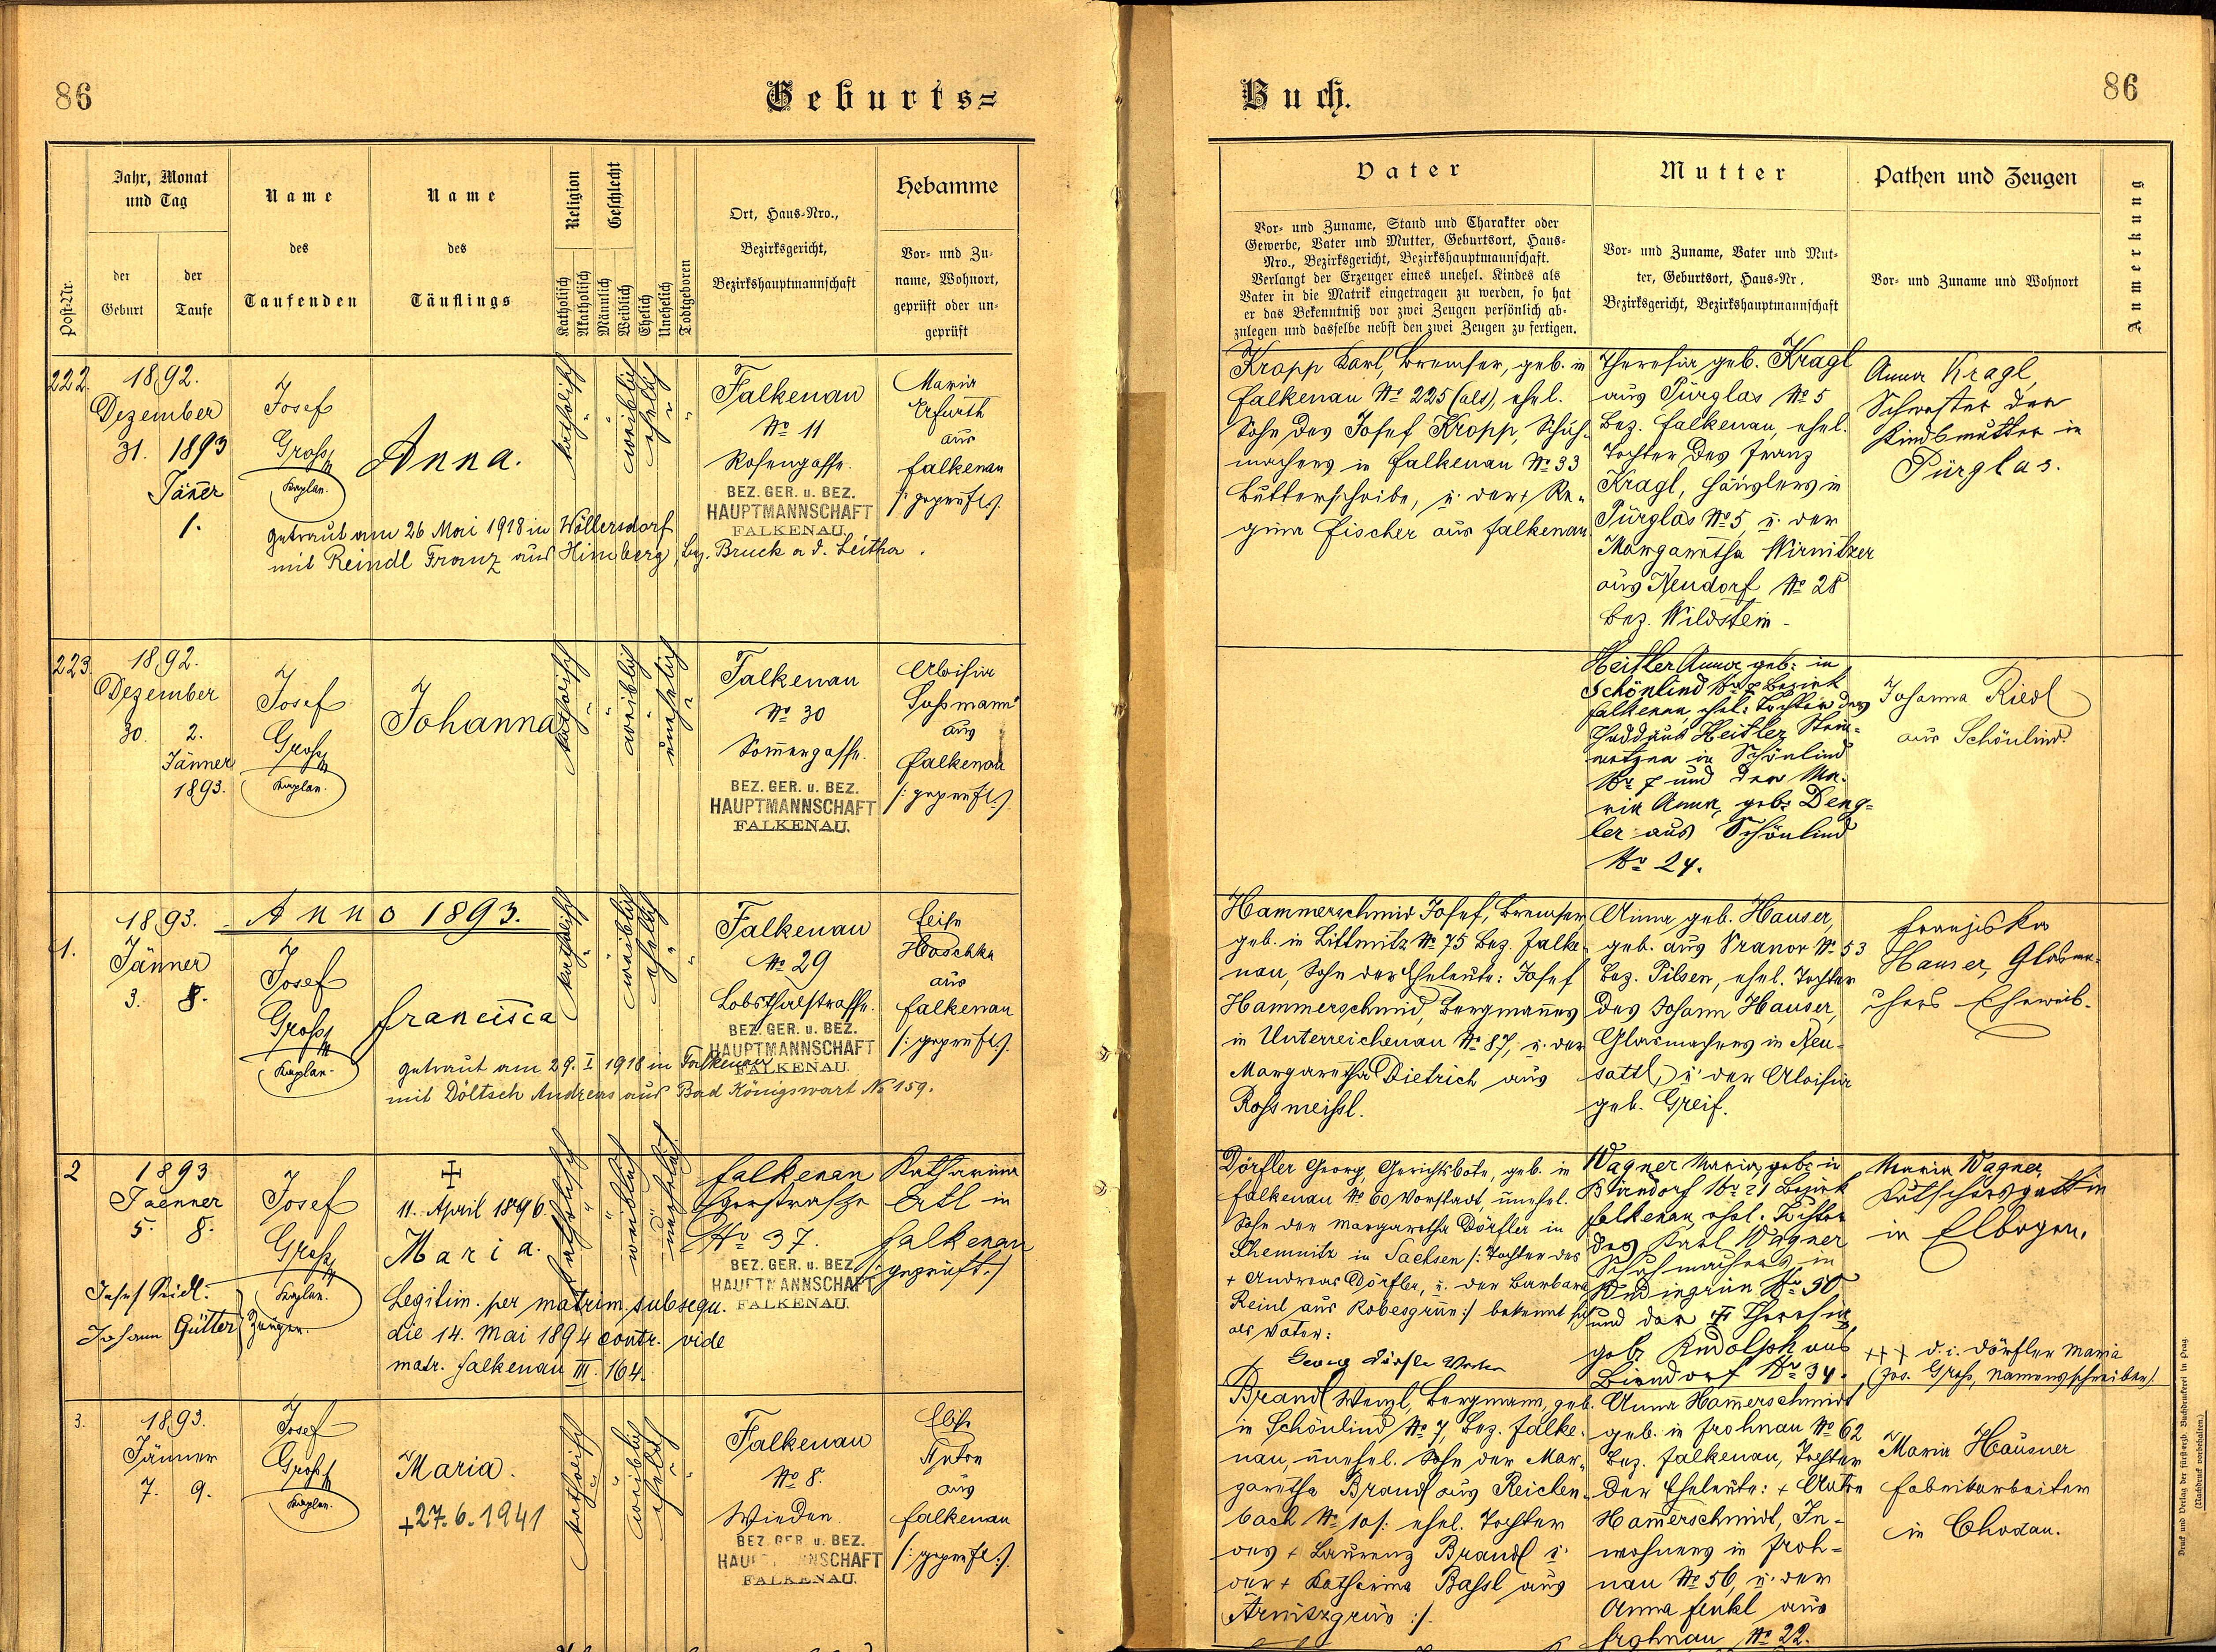 86
Geburts=
Jahr, Monat
und Tag
Name
Name
Religion
Geschlecht
Ort, Haus-Nro.,
Hebamme
des
des
Bezirksgericht,
Vor- und Zu-
Post-Nr.
der
der
Bezirkshauptmannschaft
name, Wohnort,
Geburt
Taufe
Taufenden
Täuflings
Katholisch
Akatholisch
Männlich
Weiblich
Ehelich
Unehelich
Todtgeboren
geprüft oder un-
geprüft
222.
1892.
Dezember
31. 1893
Jäner
1.
Josef
Gross
Kaplan.
Anna.
katholisch
weiblich
ehelich
Falkenau
No 11
Rosengasse.
BEZ. GER. u. BEZ.
HAUPTMANNSCHAFT
FALKENAU.
Maria
Erfurth
aus
Falkenau
/: geprüft :/.
getraut am 26 Mai 1918 in Wöllersdorf
mit Reindl Franz aus Himberg, bez. Bruck a d. Leitha.
223.
1892.
Dezember
30. 2.
Jänner
1893.
Josef
Gross
Kaplan.
Johanna
katholisch
weiblich
unehelich
Falkenau
No 30
Somergasse.
BEZ. GER. u. BEZ.
HAUPTMANNSCHAFT
FALKENAU.
Aloisia
aus
Falkenau
/: geprüft :/.
Anno 1893.
1.
1893.
Jänner
3. 8.
Josef
Gross
Kaplan.
Francisca
katholisch
weiblich
ehelich
Falkenau
No 29
Lobsthalstrasse.
BEZ. GER. u. BEZ.
HAUPTMANNSCHAFT
FALKENAU.
Haschka
aus
Falkenau
/: geprüft :/.
getraut am 29. I 1918 in Falkenau
mit Döltsch Andreas aus Bad Königswart No 159.
2
1893
Jaenner
5. 8.
Josef
Gross
Kaplan.
Josef Seidl.
Johann Gütter
Zeugen.
11. April 1896.
Maria.
katholisch
weiblich
unehelich
Falkenau
Egerstrasse
No 37.
BEZ. GER. u. BEZ.
HAUPTMANNSCHAFT
FALKENAU.
Katharina
Ertl in
Falkenau
/: geprüft :/
Legitim. per matrim. subsequ.
die 14. Mai 1894 contr. vide
matr. Falkenau III. 164.
3.
1893.
Jänner
7. 9.
Josef
Gross
Kaplan.
Maria.
+27.6.1941
katholisch
weiblich
ehelich
Falkenau
No 8.
Wieden
BEZ. GER. u. BEZ.
HAUPTMANNSCHAFT
FALKENAU.
Anton
aus
Falkenau
/: geprüft :/.
Buch.
86
Vater
Mutter
Pathen und Zeugen
Anmerkung
Vor- und Zuname, Stand und Charakter oder
Gewerbe, Vater und Mutter, Geburtsort, Haus-
Nro., Bezirksgericht, Bezirkshauptmannschaft.
Verlangt der Erzeuger eines unehel. Kindes als
Vater in die Matrik eingetragen zu werden, so hat
er das Bekenntniß vor zwei Zeugen persönlich ab-
zulegen und dasselbe nebst den zwei Zeugen zu fertigen.
Vor- und Zuname, Vater und Mut-
ter, Geburtsort, Haus-Nr.
Bezirksgericht, Bezirkshauptmannschaft
Vor- und Zuname und Wohnort
Kropp Karl, Bremser, geb. in
Falkenau No 225 (alt), ehel.
Sohn des Josef Kropp, Schuh-
machers in Falkenau No 33
Butterscheibe, u. der + Re-
gina Fischer aus Falkenau
Theresia geb. Kragl
aus Pürglas No 5
Bez. Falkenau, ehel.
Tochter des Franz
Kragl, Häuslers in
Pürglas No 5 u. der
Margaretha Wirnitzer
aus Neudorf No 28
Bez. Wildstein.
Anna Kragl,
Schwester der
Kindsmutter in
Pürglas.
Heisler Anna geb: in
Schönlind No 7 Bezirk
Falkenau, ehel: Tochter des
Thaddäus Heisler Stein-
metzen in Schönlind
No 7 und der Ma-
ria Anna, geb: Deng-
ler aus Schönlind
No 24.
Johanna Riedl
aus Schönlind.
Hammerschmid Josef, Bremser,
geb. in Littmitz No 75 Bez. Falke-
nau, Sohn der Eheleute: Josef
Hammerschmid, Bergmannes
in Unterreichenau No 87, u. der
Margaretha Dietrich aus
Rossmeissl.
Anna geb. Hauser,
geb. aus Vranov No 53
Bez. Pilsen, ehel. Tochter
des Johann Hauser,
Glasmachers in Neu-
sattl, u. der Aloisia
geb. Greif.
Franziska
Hauser, Glasma-
chers Eheweib.
Dörfler Georg, Gerichtsbote, geb. in
Falkenau No 60, Vorstadt, unehel.
Sohn der Margaretha Dörfler in
Chemnitz in Sachsen /: Tochter des
+ Andreas Dörfler, u. der Barbara
Reinl aus Robesgrün :/ bekennt sich
als Vater:
Georg Dörfler Vater
Wagner Maria, geb: in
Birndorf No 21 Bezirk
Falkenau, ehel. Tochter
des Karl Wagner
Schuhmachers in
No 50
und der Theresia
geb: Rudolph aus
Birndorf No 34.
Maria Wagner
Kutschersgattin
in Elbogen.
+++ d. i. Dörfler Maria
(Jos. Gross, Namensschreiber)
Brandl Wenzl, Bergmann, geb.
in Schönlind No 7, Bez. Falke-
nau, unehel. Sohn der Mar-
garetha Brandl aus Reichen-
bach No 10 /: ehel. Tochter
des + Laurenz Brandl u.
der + Katharina Bassl aus
Arnitzgrün :/.
Anna Hamerschmidt
geb. in Frohnau No 62
Bez. Falkenau, Tochter
der Eheleute: + Anton
Hamerschmidt, In-
wohners in Froh-
nau No 56, u. der
Anna Fenkl aus
Frohnau No 22.
Maria Häusner
Fabriksarbeiter
in Chodau.
Druck und Verlag der fürsterzb. Buchdruckerei in Prag.
(Nachdruck vorbehalten.)